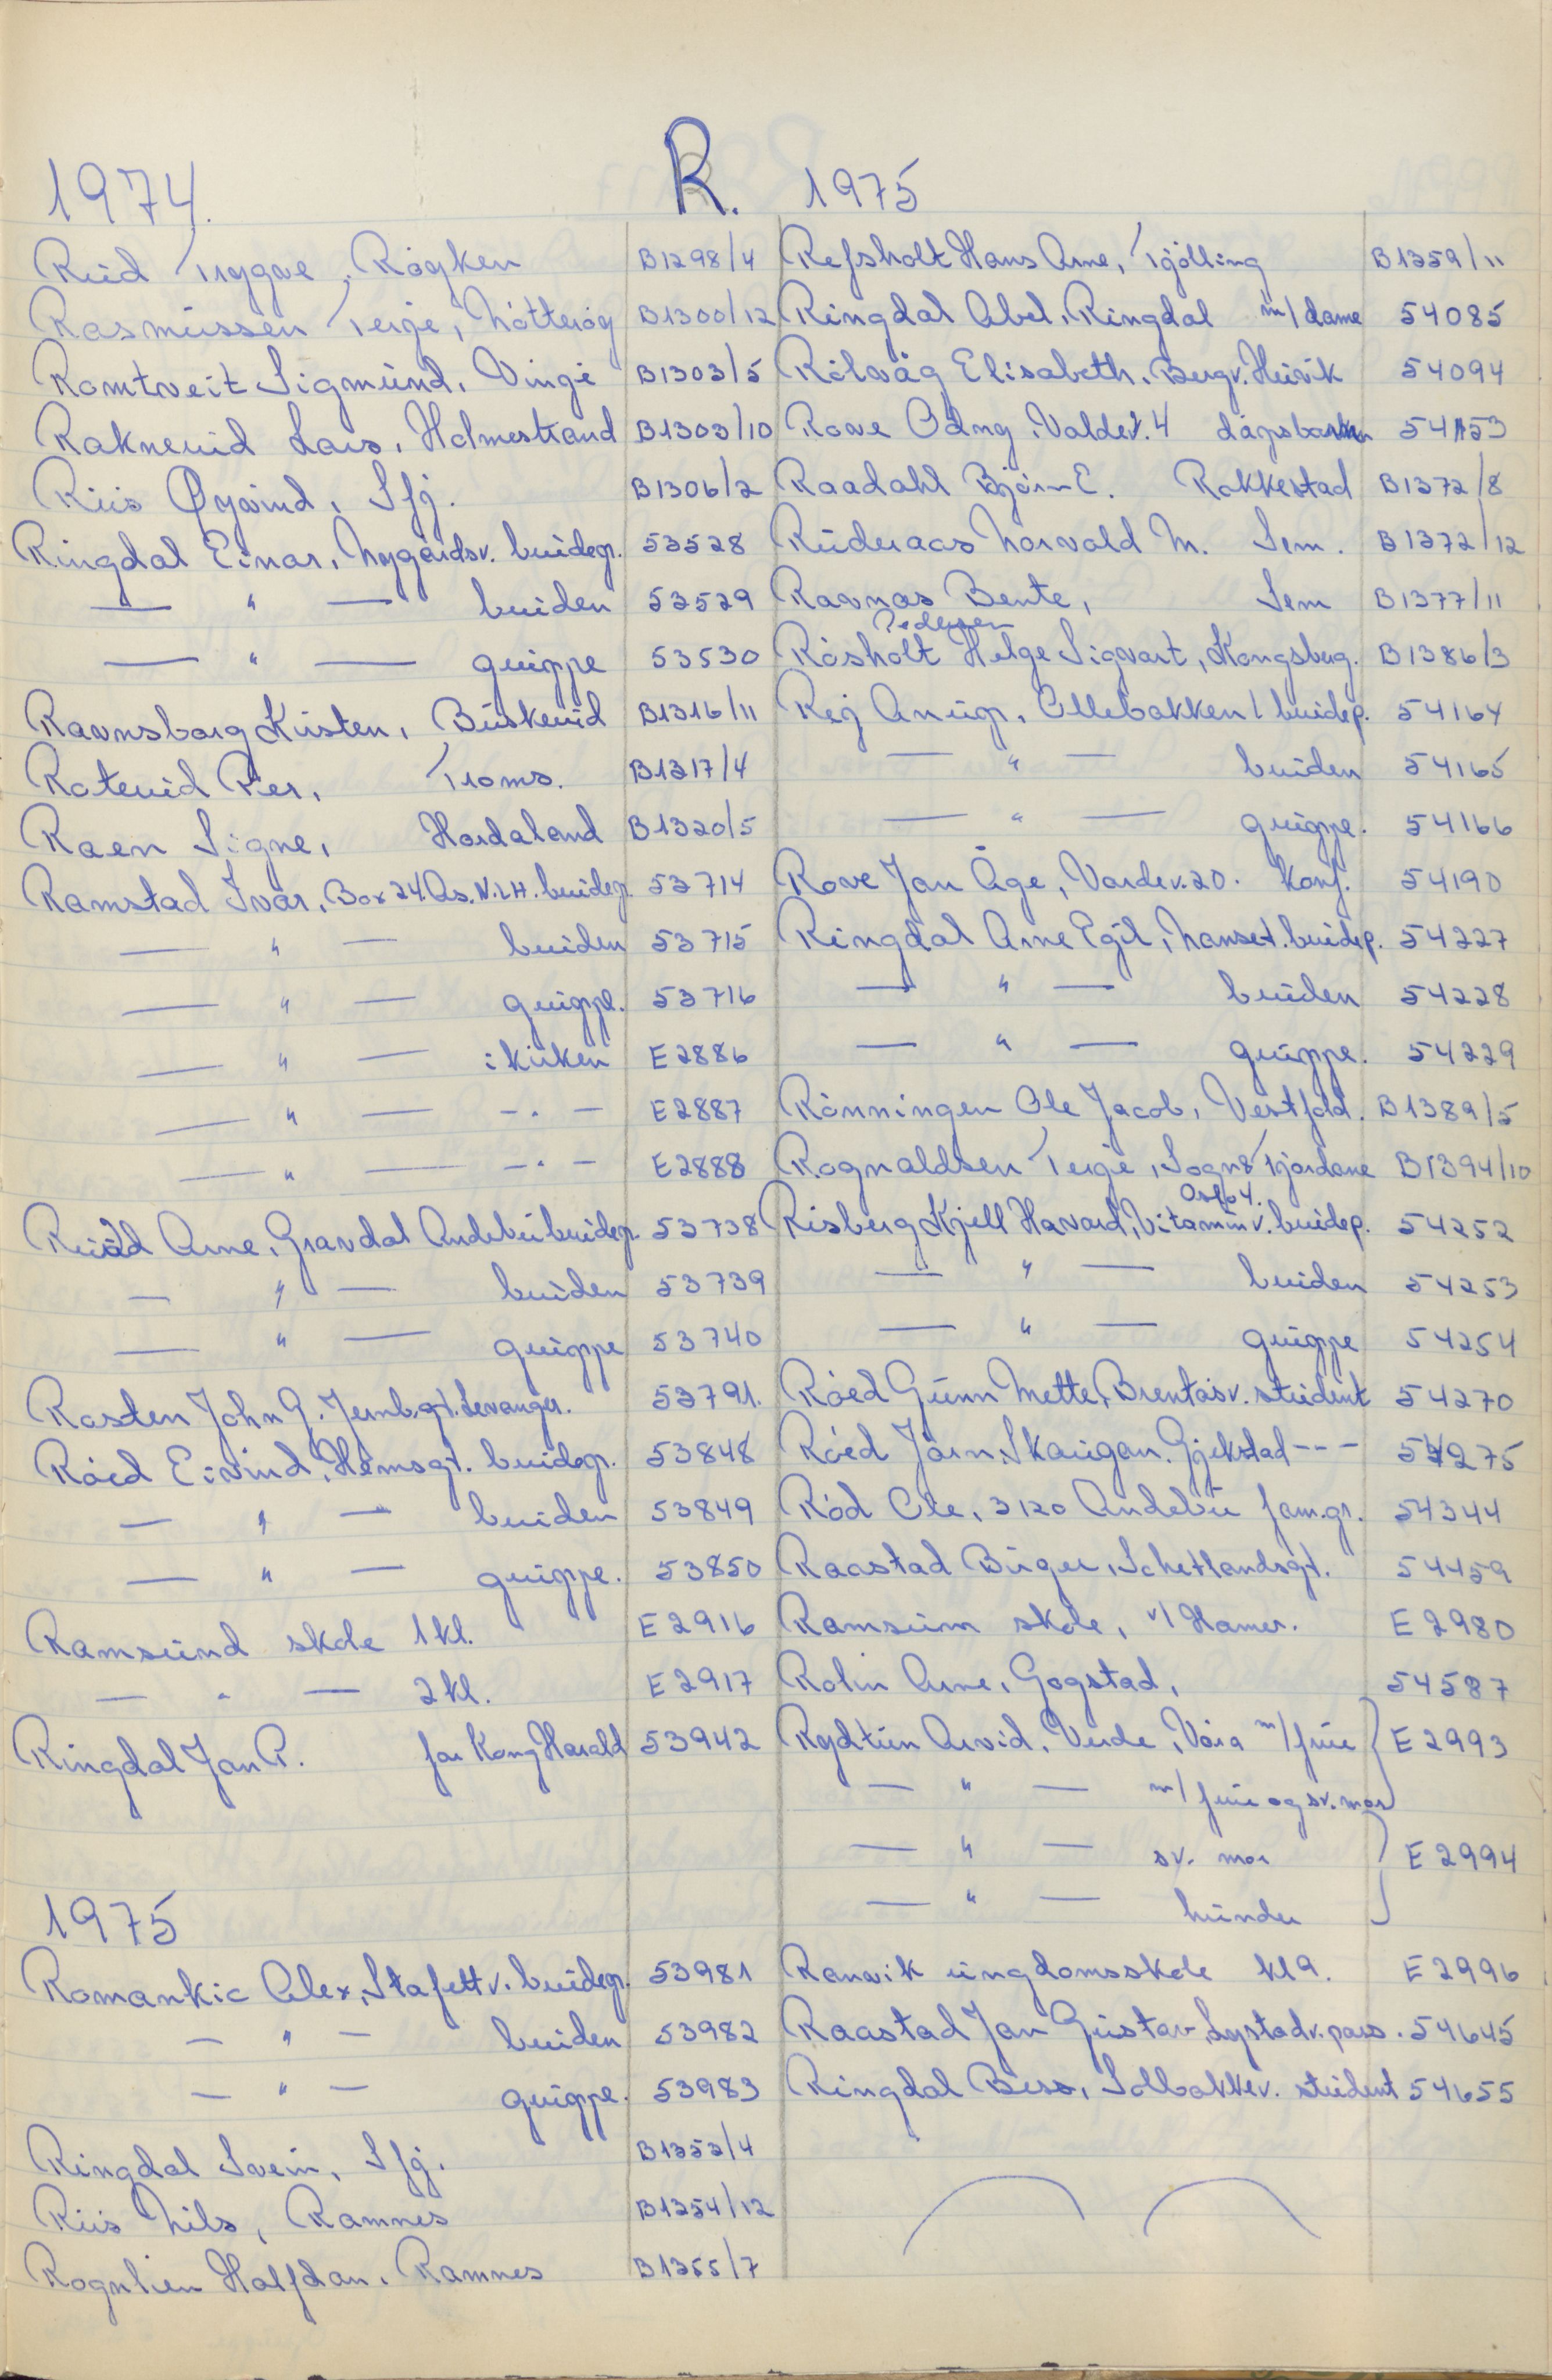 R.
1974.
Rud Trygve, Röyken B1298/4
Rasmussen Terje, Nötteröy B1300/12
Romtveit Sigmund, Vinje B1303/5
Raknerud Lars, Holmestrand B1303/10
Riis Øyvind, Sfj. B1306/2
Ringdal Einar, Nygårdsv. brudep. 53528
— " — bruden 53529
— " — gruppe 53530
Ravnsborg Kirsten, Buskerud B1316/11
Raterud Per, Troms. B1317/4
Raen Signe, Hordaland B1320/5
Ramstad Ivar, Box 24. Ås. N.L.H. brudep. 53714
— " — bruden 53715
— " — gruppe. 53716
— " — i kirken E2886
— " — - . - E2887
— " — - . - E2888
Arne, Gravdal Andebu brudep. 53738
— " — bruden 53739
— " — gruppe 53740
Rosten John G. Jernb.gt. Levanger. 53791.
Röed Eivind, Hemsgt. brudep. 53848
— " — bruden 53849
— " — gruppe. 53850
Ramsund skole 1 kl. E2916
— " — 2 kl. E2917
Ringdal Jan P. for Kong Harald 53942
1975
Romankic Alex, Stafettv. brudep. 53981
— " — bruden 53982
— " — gruppe. 53983
Ringdal Svein, Sfj. B1353/4
Riis Nils, Ramnes B1354/12
Rognlien Halfdan, Ramnes B1355/7
1975
Refsholt Hans Arne, Tjölling B1359/11
Ringdal Abel, Ringdal m/dame 54085
Rölvåg Elisabeth, Bergv. Husvik 54094
Rove Odny, Valdev. 4 dåpsbarn 54153
Raadahl Björn E. Rakkestad B1372/8
Ruderaas Norvald M. Sem. B1372/12
Ravnas Bente, Sem B1377/11
Pedersen
Rösholt Helge Sigvart, Kongsberg. B1386/3
Rej Anup, Ollebakken 1 brudep. 54164
— " — bruden 54165
— " — gruppe. 54166
Rove Jan Åge, Vardev. 20. konf. 54190
Ringdal Arne Egil, Nanset. brudep. 54227
— " — bruden 54228
— " — gruppe. 54229
Rönningen Ole Jacob, Vestfold. B1389/5
Rognaldsen Terje, Sogn & Fjordane B1394/10
Oslo 4.
Risberg Kjell Havard, Vitaminv. brudep. 54252
— " — bruden 54253
— " — gruppe 54254
Röed Gunn Mette, Brentåsv. student 54270
Röed Jörn, Skaugan. Gjekstad - - - 54275
Röd Ole, 3120 Andebu fam.gr. 54344
Raastad Birger, Schetlandsgt. 54459
Ramsum skole, v/ Hamer. E2980
Rolin Arne, Gogstad, 54587
Rydtun Arvid, Verde, Våra m/frue E2993
— " — m/ frue og sv. mor
— " — sv. mor E2994
— " — hunder
Ranvik ungdomsskole kl 9. E2996
Raastad Jan Gustav, Lystadv. pass. 54645
Ringdal Bess, Solbakkev. student 54655